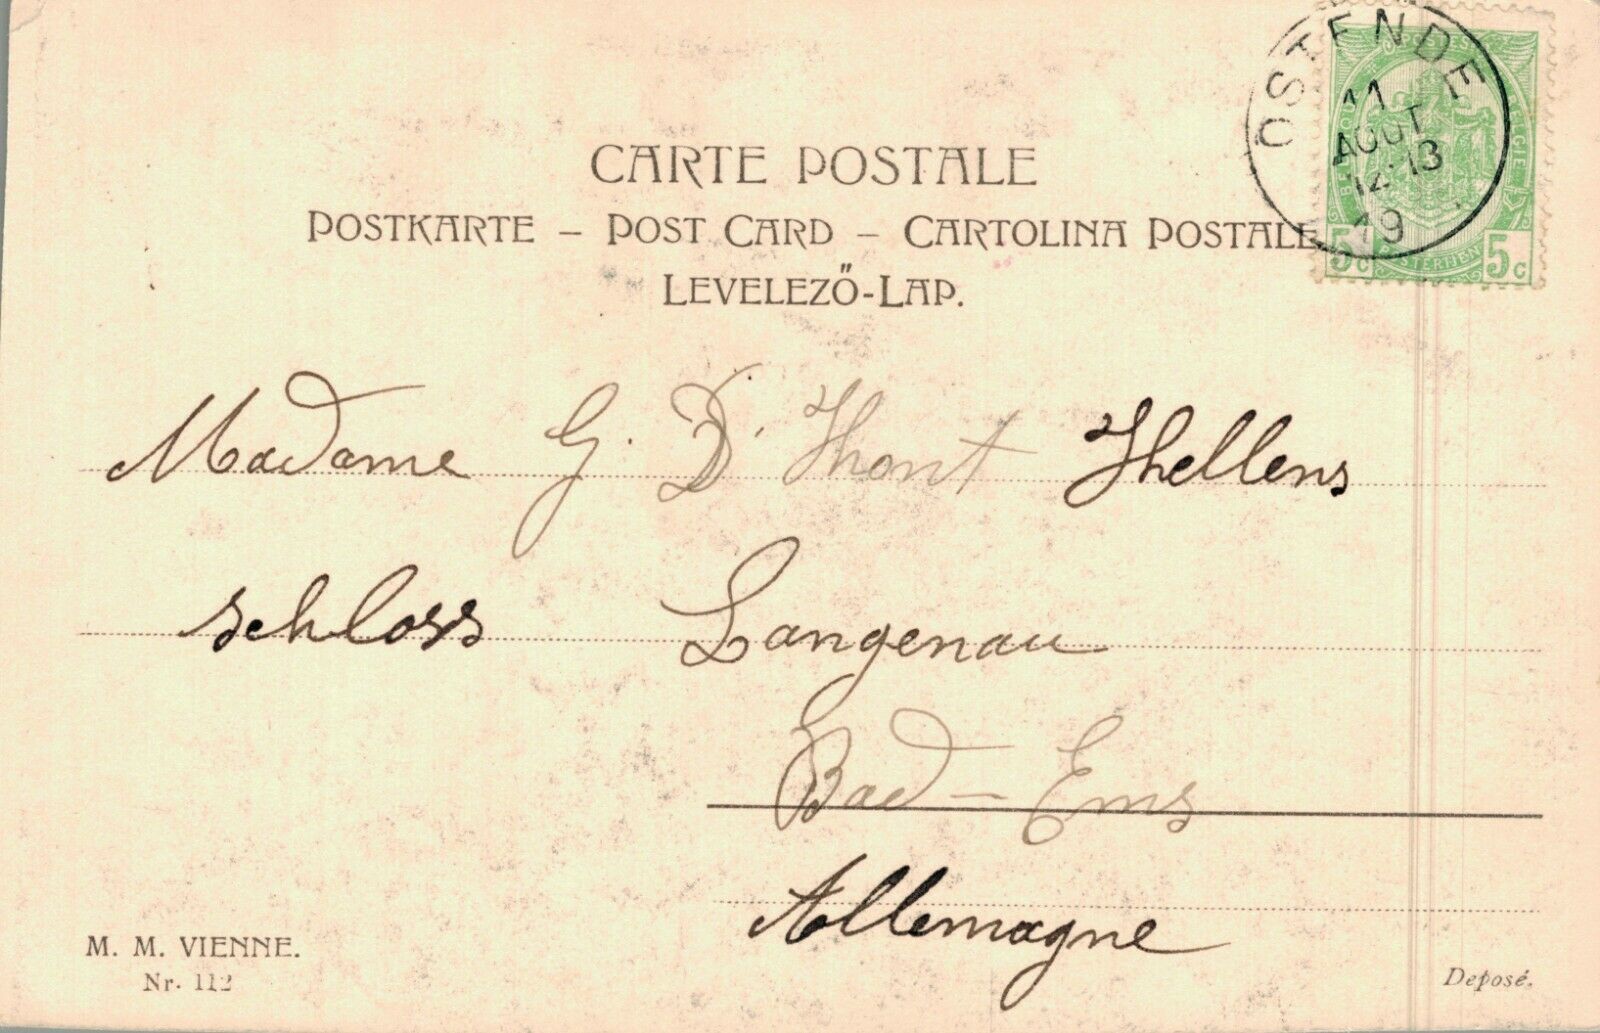 CARTE POSTALE
POSTKARTE – POST CARD – CARTOLINA POSTALE
LEVELEZŐ-LAP.
OSTENDE
11
AOUT
12-13
19
5c
POSTERIJEN
5c
Madame G. D'Hont Hellens
schloss Langenau
Bad-Ems
Allemagne
M. M. VIENNE.
Nr. 112
Deposé.